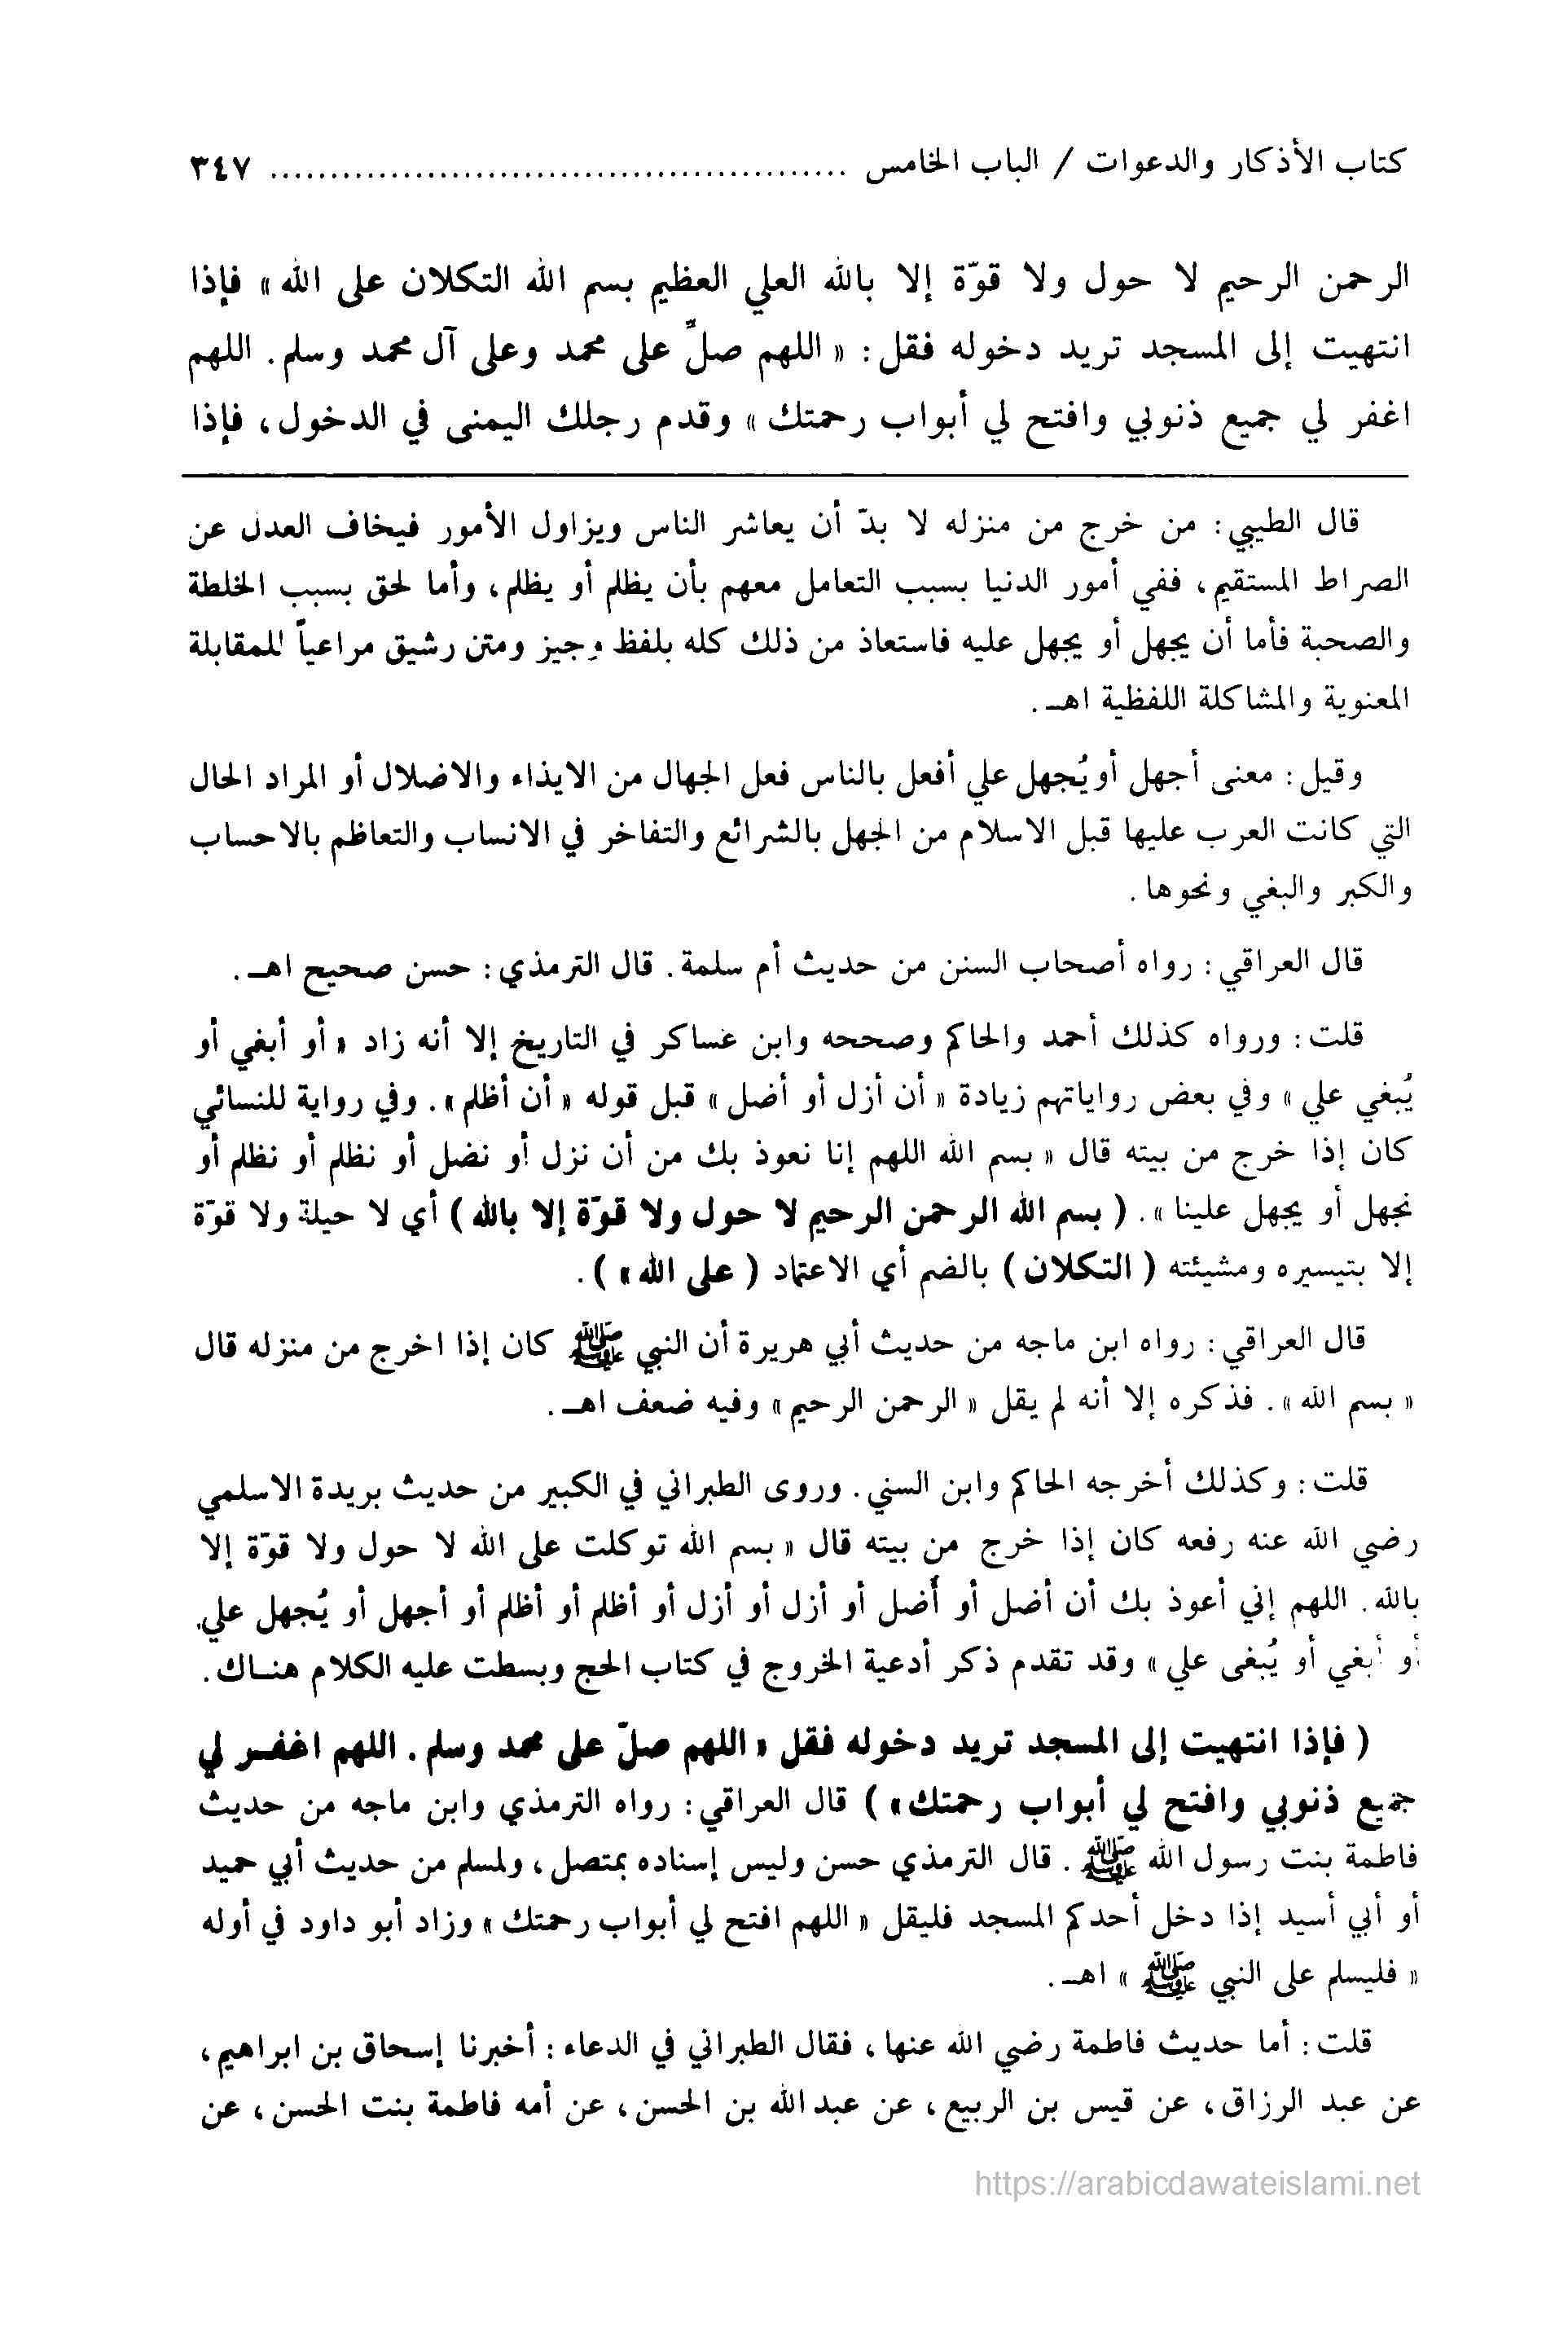 كتاب الأذكار والدعوات / الباب الخامس ................................................ ٣٤٧
الرحمن الرحيم لا حول ولا قوّة إلا بالله العلي العظيم بسم الله التكلان على الله » فإذا
انتهيت إلى المسجد تريد دخوله فقل : « اللهم صلِّ على محمد وعلى آل محمد وسلم . اللهم
اغفر لي جميع ذنوبي وافتح لي أبواب رحمتك » وقدم رجلك اليمنى في الدخول ، فإذا
قال الطيبي : من خرج من منزله لا بدّ أن يعاشر الناس ويزاول الأمور فيخاف العدل عن
الصراط المستقيم ، ففي أمور الدنيا بسبب التعامل معهم بأن يظلم أو يظلم ، وأما لحق بسبب الخلطة
والصحبة فأما أن يجهل أو يجهل عليه فاستعاذ من ذلك كله بلفظ وجيز ومتن رشيق مراعياً للمقابلة
المعنوية والمشاكلة اللفظية اهـ .
وقيل : معنى أجهل أو يُجهل علي أفعل بالناس فعل الجهال من الايذاء والاضلال أو المراد الحال
التي كانت العرب عليها قبل الاسلام من الجهل بالشرائع والتفاخر في الانساب والتعاظم بالاحساب
والكبر والبغي ونحوها .
قال العراقي : رواه أصحاب السنن من حديث أم سلمة . قال الترمذي : حسن صحيح اهـ .
قلت : ورواه كذلك أحمد والحاكم وصححه وابن عساكر في التاريخ إلا أنه زاد « أو أبغي أو
يُبغي علي » وفي بعض رواياتهم زيادة « أن أزل أو أضل » قبل قوله « أن أظلم » . وفي رواية للنسائي
كان إذا خرج من بيته قال « بسم الله اللهم إنا نعوذ بك من أن نزل أو نضل أو نظلم أو نظلم أو
نجهل أو يجهل علينا » . ( بسم الله الرحمن الرحيم لا حول ولا قوّة إلا بالله ) أي لا حيلة ولا قوّة
إلا بتيسيره ومشيئته ( التكلان ) بالضم أي الاعتماد ( على الله » ) .
قال العراقي : رواه ابن ماجه من حديث أبي هريرة أن النبي ﷺ كان إذا اخرج من منزله قال
« بسم الله » . فذكره إلا أنه لم يقل « الرحمن الرحيم » وفيه ضعف اهـ .
قلت : وكذلك أخرجه الحاكم وابن السني . وروى الطبراني في الكبير من حديث بريدة الاسلمي
رضي الله عنه رفعه كان إذا خرج من بيته قال « بسم الله توكلت على الله لا حول ولا قوّة إلا
بالله . اللهم إني أعوذ بك أن أضل أو أَضل أو أزل أو أزل أو أظلم أو أظلم أو أجهل أو يُجهل علي
أو أبغي أو يُبغى علي » وقد تقدم ذكر أدعية الخروج في كتاب الحج وبسطت عليه الكلام هناك .
( فإذا انتهيت إلى المسجد تريد دخوله فقل « اللهم صلّ على محمد وسلم . اللهم اغفر لي
جميع ذنوبي وافتح لي أبواب رحمتك » ) قال العراقي : رواه الترمذي وابن ماجه من حديث
فاطمة بنت رسول الله ﷺ . قال الترمذي حسن وليس إسناده بمتصل ، ولمسلم من حديث أبي حميد
أو أبي أسيد إذا دخل أحدكم المسجد فليقل « اللهم افتح لي أبواب رحمتك » وزاد أبو داود في أوله
« فليسلم على النبي ﷺ » اهـ .
قلت : أما حديث فاطمة رضي الله عنها ، فقال الطبراني في الدعاء : أخبرنا إسحاق بن ابراهيم ،
عن عبد الرزاق ، عن قيس بن الربيع ، عن عبد الله بن الحسن ، عن أمه فاطمة بنت الحسن ، عن
https://arabicdawateislami.net